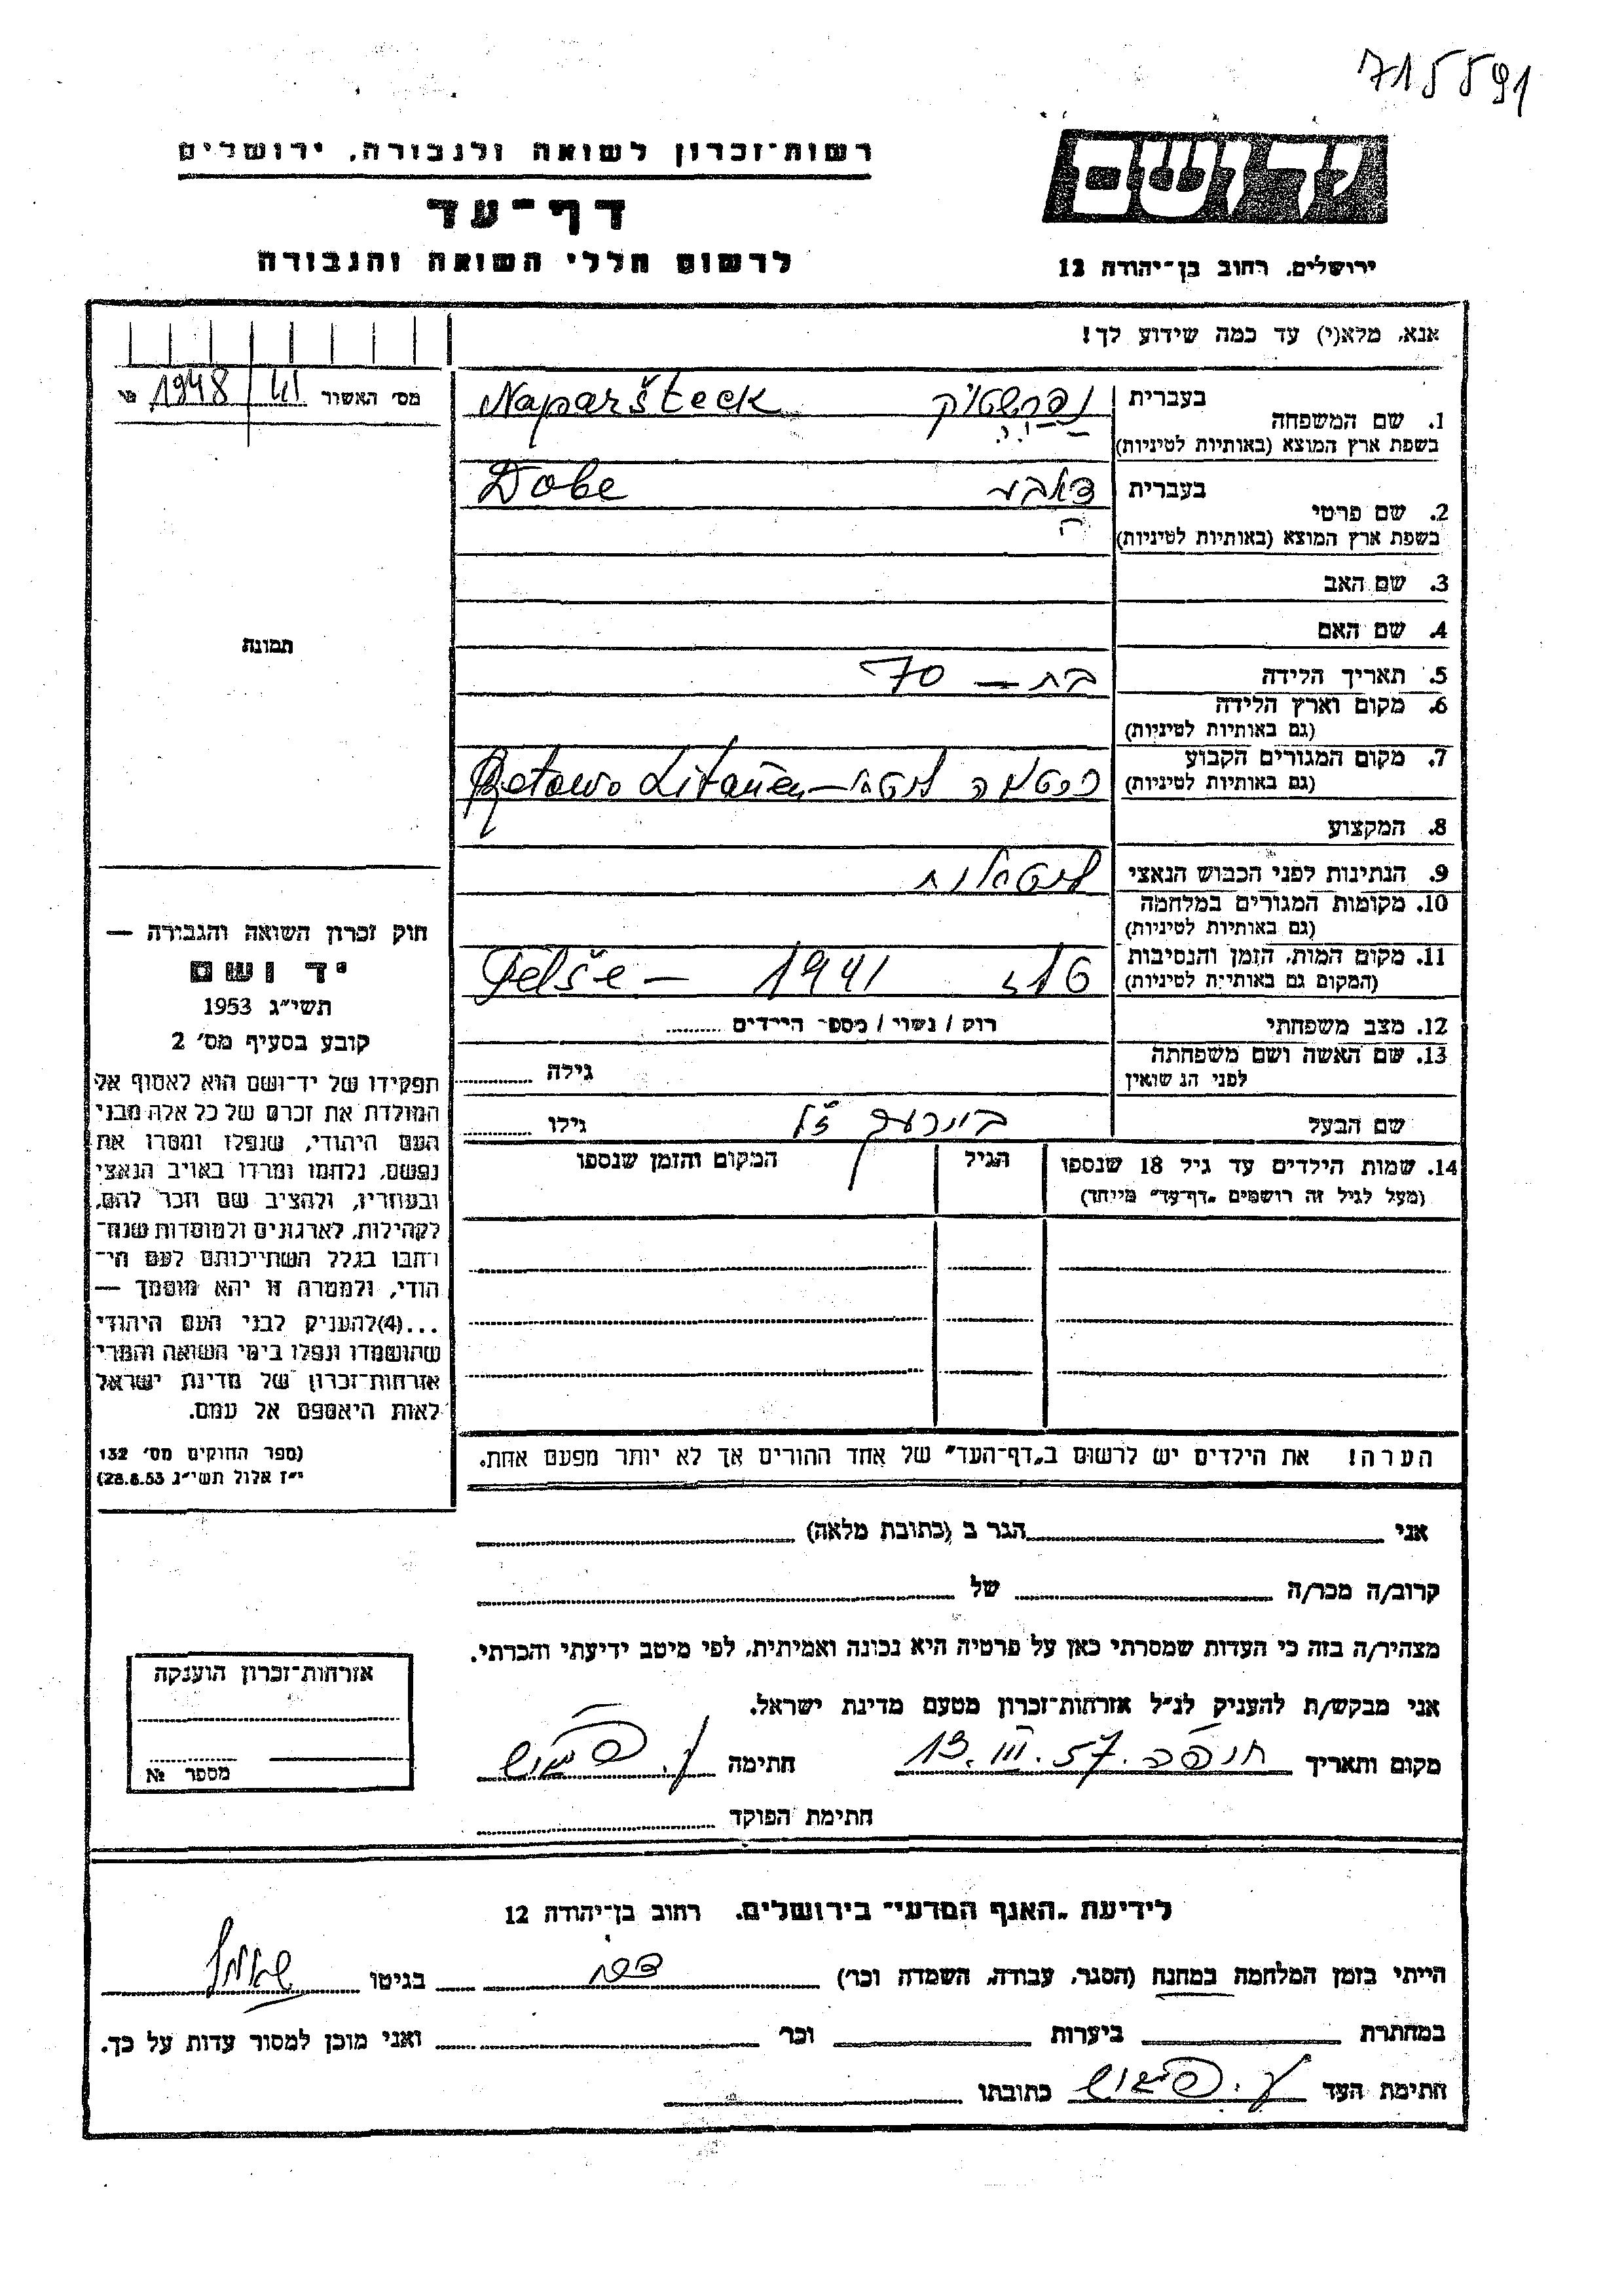 715591
רשות־זכרון לשואה ולגבורה, ירושלים
דף־עד
לרשום חללי השואה והגבורה
יד ושם
ירושלים, רחוב בן־יהודה 12
אנא, מלא(י) עד כמה שידוע לך!
מס׳ האשור
1948
תמונה
1. שם המשפחה בעברית
בשפת ארץ המוצא (באותיות לטיניות)
Naparšteck
2. שם פרטי בעברית דאבע
ה
בשפת ארץ המוצא (באותיות לטיניות)
Dobe
3. שם האב
4. שם האם
5. תאריך הלידה בת — 70
6. מקום וארץ הלידה
(גם באותיות לטיניות)
7. מקום המגורים הקבוע
(גם באותיות לטיניות)
Retowo Litauen
8. המקצוע
9. הנתינות לפני הכבוש הנאצי ליטאית
10. מקומות המגורים במלחמה
(גם באותיות לטיניות)
11. מקום המות, הזמן והנסיבות
(המקום גם באותיית לטיניות)
Telše — 1941
12. מצב משפחתי רוק / נשוי / מספר הילדים
13. שם האשה ושם משפחתה
לפני הנשואין גילה
שם הבעל ז״ל גילו
14. שמות הילדים עד גיל 18 שנספו הגיל המקום והזמן שנספו
(מעל לגיל זה רושמים „דף־עד” מייחד)
חוק זכרון השואה והגבורה —
יד ושם
תשי״ג 1953
קובע בסעיף מס׳ 2
תפקידו של יד־ושם הוא לאסוף אל
המולדת את זכרם של כל אלה מבני
העם היהודי, שנפלו ומסרו את
נפשם, נלחמו ומרדו באויב הנאצי
ובעוזריו, ולהציב שם וזכר להם,
לקהילות, לארגונים ולמוסדות שנח־
רחבו בגלל השתייכותם לעם הי־
הודי, ולמטרה זו יהא מוסמך —
...(4)להעניק לבני העם היהודי
שהושמדו ונפלו בימי השואה והמרי
אזרחות־זכרון של מדינת ישראל
לאות היאספם אל עמם.
(ספר החוקים מס׳ 132
י״ז אלול תשי״ג 28.8.53)
הערה! את הילדים יש לרשום ב„דף־העד” של אחד ההורים אך לא יותר מפעם אחת.
אני הגר ב (כתובת מלאה)
קרוב/ה מכר/ה של
מצהיר/ה בזה כי העדות שמסרתי כאן על פרטיה היא נכונה ואמיתית, לפי מיטב ידיעתי והכרתי.
אני מבקש/ת להעניק לנ״ל אזרחות־זכרון מטעם מדינת ישראל.
מקום ותאריך חיפה 13.III.57 חתימה
חתימת הפוקד
אזרחות־זכרון הוענקה
מספר №
לידיעת „האגף המדעי” בירושלים, רחוב בן־יהודה 12
הייתי בזמן המלחמה במחנה (הסגר, עבודה, השמדה וכר׳) בגיטו
במחתרת ביערות וכר׳ ואני מוכן למסור עדות על כך.
חתימת העד כתובתו